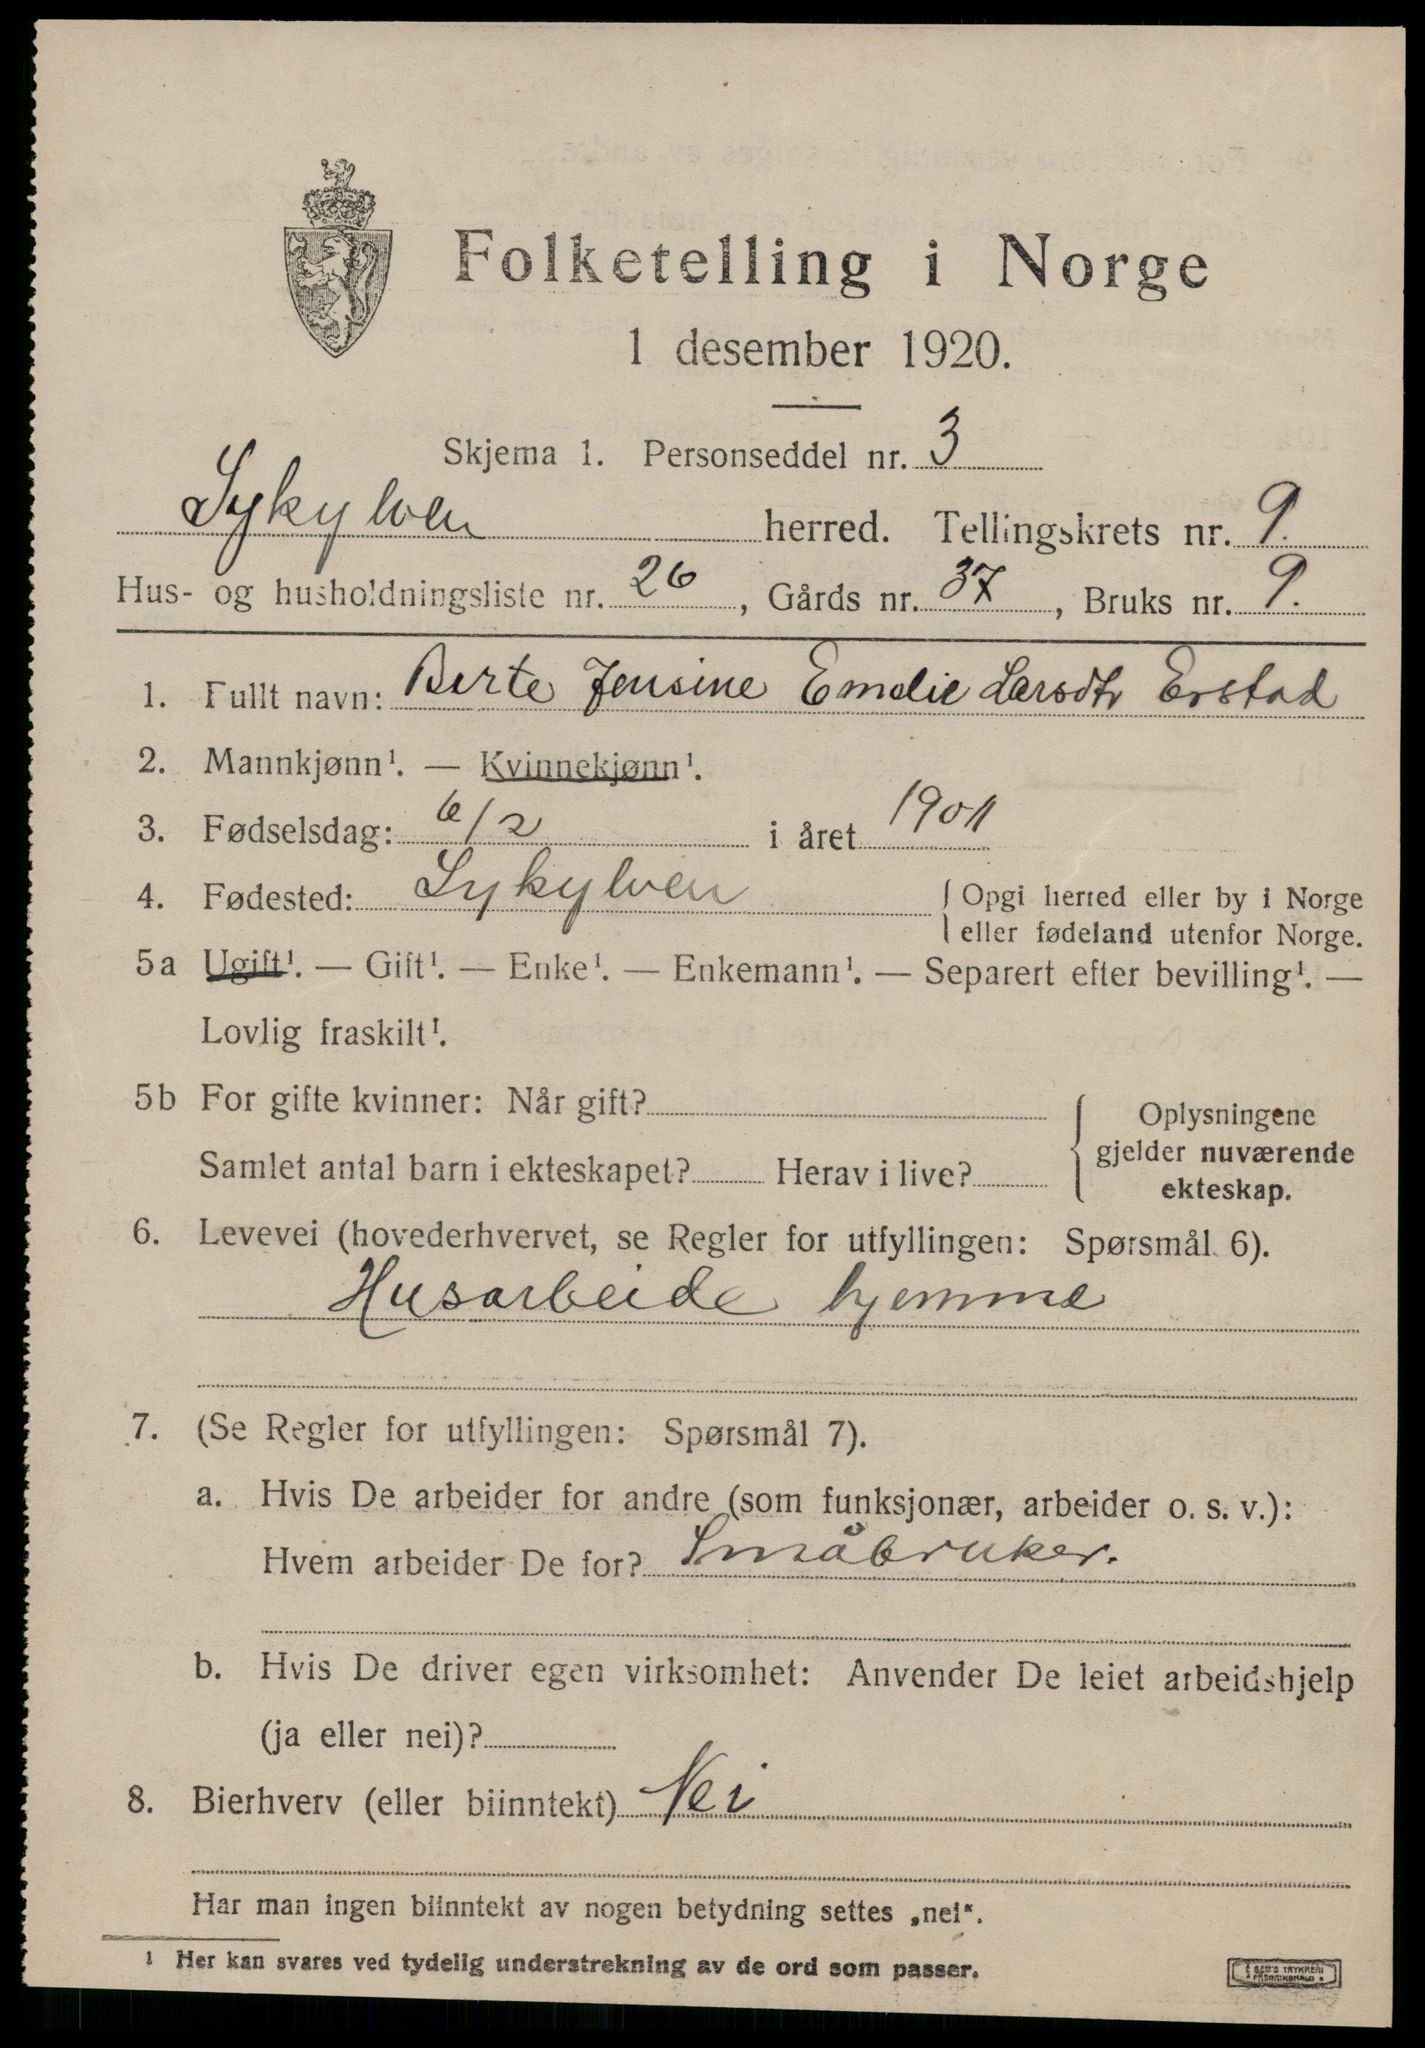 Folketelling i Norge
1 desember 1920.
Skjema 1. Personseddel nr. 3
Sykylven herred. Tellingskrets nr. 9.
Hus- og husholdningsliste nr. 26, Gårds nr. 37, Bruks nr. 9.
1. Fullt navn: Berte Jensine Emelie Larsdtr Erstad
2. Mannkjønn¹. — Kvinnekjønn¹.
3. Fødselsdag: 6/2 i året
4. Fødested: Sykylven { Opgi herred eller by i Norge
eller fødeland utenfor Norge.
5a Ugift¹. — Gift¹. — Enke¹. — Enkemann¹. — Separert efter bevilling¹. —
Lovlig fraskilt¹.
5b For gifte kvinner: Når gift?
Samlet antal barn i ekteskapet? Herav i live?
{ Oplysningene
gjelder nuværende
ekteskap.
6. Levevei (hovederhvervet, se Regler for utfyllingen: Spørsmål 6).
Husarbeide hjemme
7. (Se Regler for utfyllingen: Spørsmål 7).
a. Hvis De arbeider for andre (som funksjonær, arbeider o. s. v.):
Hvem arbeider De for? Småbruker.
b. Hvis De driver egen virksomhet: Anvender De leiet arbeidshjelp
(ja eller nei)?
8. Bierhverv (eller biinntekt) Nei
Har man ingen biinntekt av nogen betydning settes „nei".
¹ Her kan svares ved tydelig understrekning av de ord som passer.
SEM'S TRYKKERI
FREDRIKSHALD